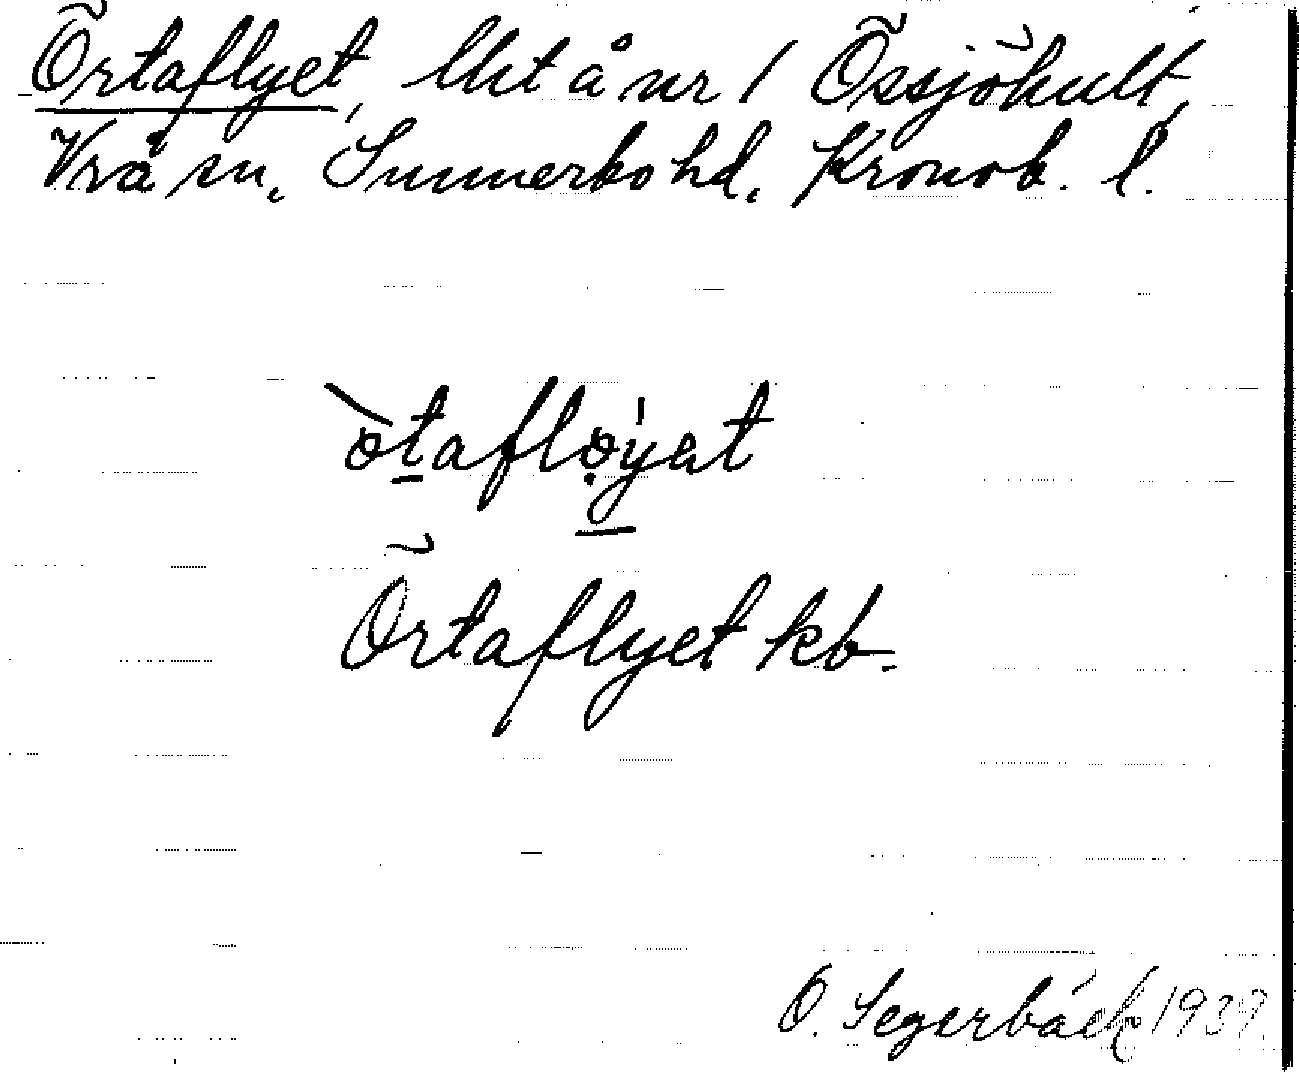 Örtaflyet, lht å nr 1 Össjöhult,
Vrå sn, Sunnerbo hd, Kronob. l.
òtafløyət
Örtaflyet kb.
O. Segerbäck 1939